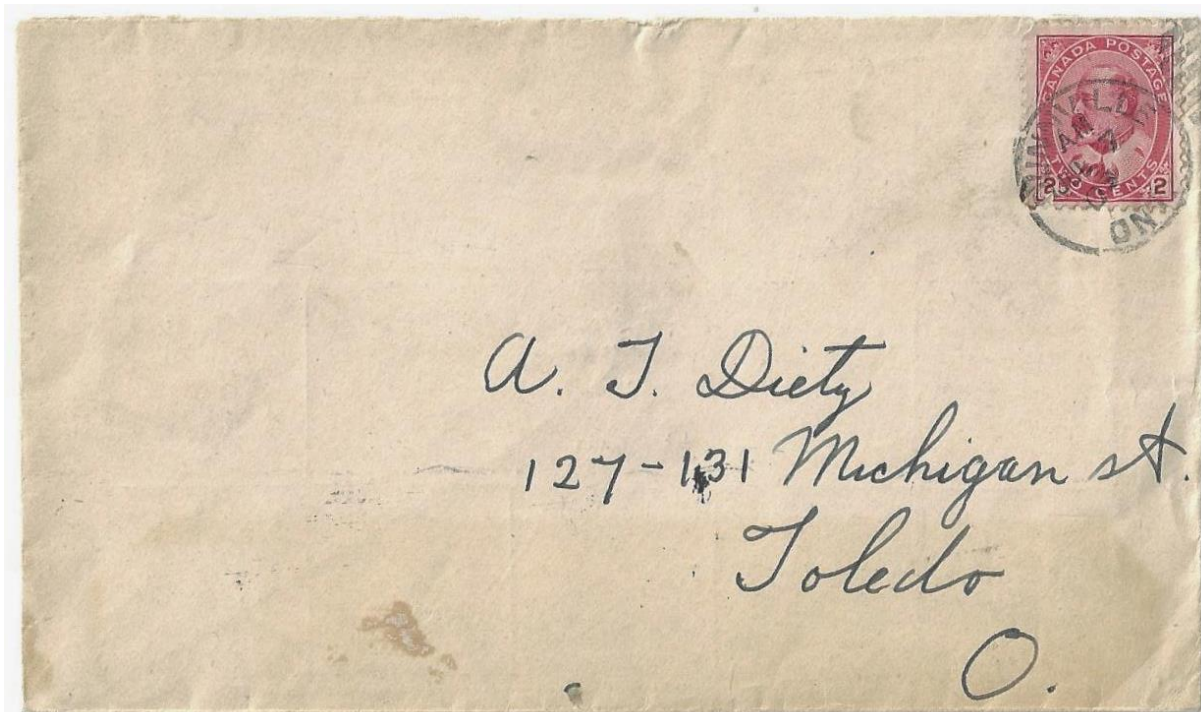 CANADA POSTAGE
2 TWO CENTS 2
AM
A. T. Diety
127-131 Michigan st.
Toledo
O.